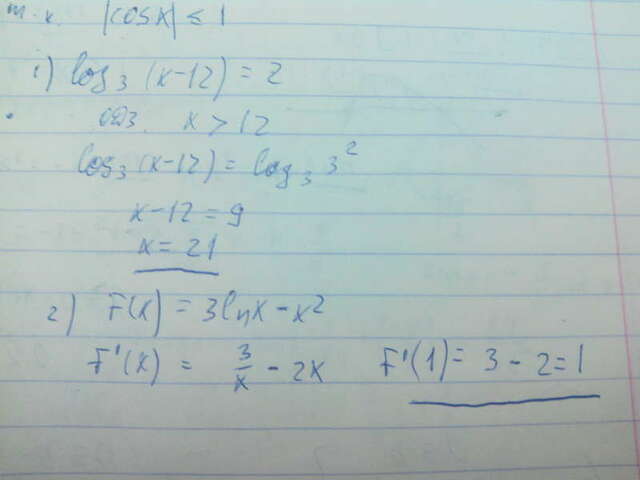 т.к. |cosx| ≤ 1
1) log₃ (x-12) = 2
одз. x > 12
log₃ (x-12) = log₃ 3²
x-12 = 9
x = 21
2) F(x) = 3lnx - x²
F'(x) = 3/x - 2x F'(1) = 3 - 2 = 1